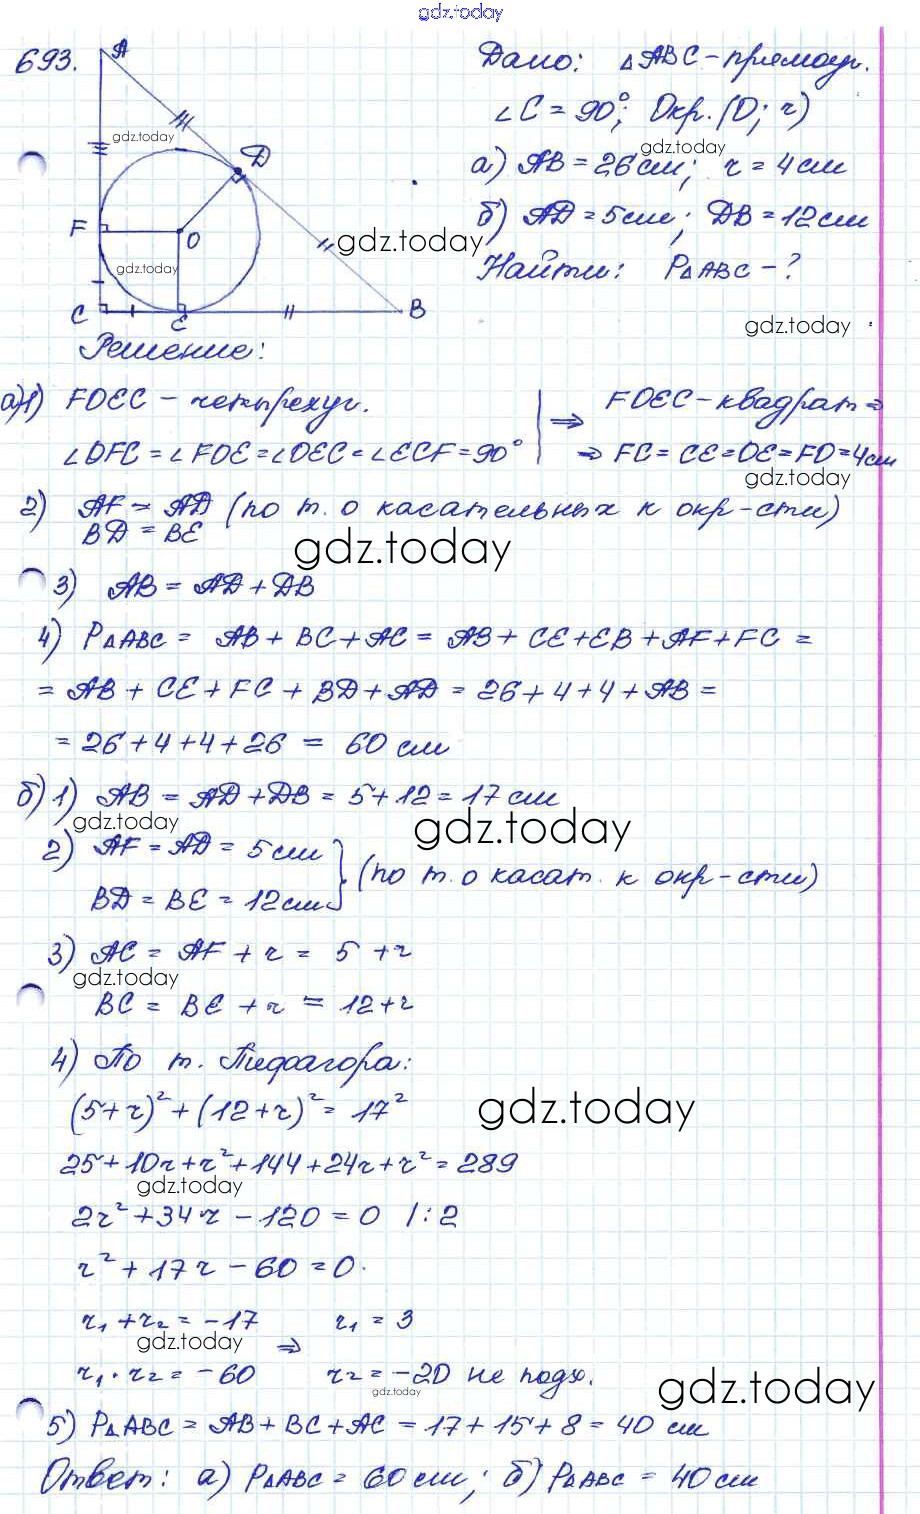 gdz.today
693.
A
D
F
O
C
E
B
gdz.today
gdz.today
gdz.today
Дано: △ABC - прямоуг.
∠C = 90°; Окр. (O; r)
gdz.today
а) AB = 26 см; r = 4 см
б) AD = 5 см; DB = 12 см
Найти: P△ABC - ?
gdz.today
Решение:
а) 1) FOEC - четырехуг. | ⇒ FOEC - квадрат ⇒
∠OFC = ∠FOE = ∠OEC = ∠ECF = 90° | ⇒ FC = CE = OE = FO = 4 см
gdz.today
2) AF = AD (по т. о касательных к окр-сти)
BD = BE
gdz.today
3) AB = AD + DB
4) P△ABC = AB + BC + AC = AB + CE + EB + AF + FC =
= AB + CE + FC + BD + AD = 26 + 4 + 4 + AB =
= 26 + 4 + 4 + 26 = 60 см
б) 1) AB = AD + DB = 5 + 12 = 17 см
gdz.today
gdz.today
2) AF = AD = 5 см
BD = BE = 12 см } (по т. о касат. к окр-сти)
3) AC = AF + r = 5 + r
gdz.today
BC = BE + r = 12 + r
4) По т. Пифагора:
(5 + r)² + (12 + r)² = 17²
gdz.today
25 + 10r + r² + 144 + 24r + r² = 289
gdz.today
2r² + 34r - 120 = 0 |: 2
r² + 17r - 60 = 0.
r₁ + r₂ = -17 r₁ = 3
gdz.today ⇒
r₁ · r₂ = -60 r₂ = -20 не подх.
gdz.today
gdz.today
5) P△ABC = AB + BC + AC = 17 + 15 + 8 = 40 см
Ответ: а) P△ABC = 60 см; б) P△ABC = 40 см